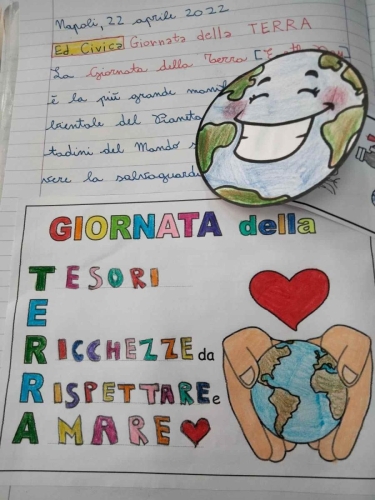 Napoli, 22 aprile 2022
Ed. Civica Giornata della TERRA
La Giornata della Terra
è la più grande
bientale del Pianeta
tadini del Mondo
vere la
GIORNATA della
TESORI
E
RICCHEZZE da
RISPETTARE e
AMARE